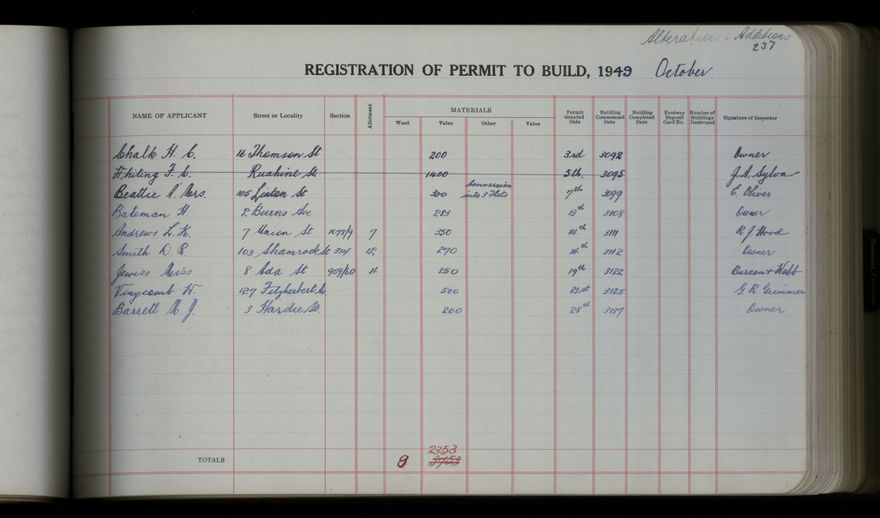 Alterations - Additions
237
REGISTRATION OF PERMIT TO BUILD, 1949 October
NAME OF APPLICANT Street or Locality Section Allotment MATERIALS Wood Value Other Value Permit Granted Date Building Commenced Date Building Completed Date Footway Deposit Card No. Number of Buildings Destroyed Signature of Inspector
Chalk H. C. 16 Thomson St 200 3rd 3092 Owner
Whiting F. C. Ruahine St 1400 5th. 3095 J.A. Sylva
Beattie Mrs. 105 Linton St 300 Conversion into 3 Flats 7th 3099 C. Oliver
Bateman H 2 Burns Ave 283 13th 3108 Owner
Andrews L. K. 7 Union St 1078/9 7 350 3111 R J Hood
Smith D. R. 103 Shamrock St 314 12 270 14th 3112 Owner
Jewiss Miss 8 Ada St 959/60 11 250 19th 3122 Burson & Webb
Vinycomb H 127 Fitzherbert Av 500 21st 3125 G R Grimmer
Barrett M. J. 3 Hardie St. 200 28th Owner
2353
TOTALS 8 3753